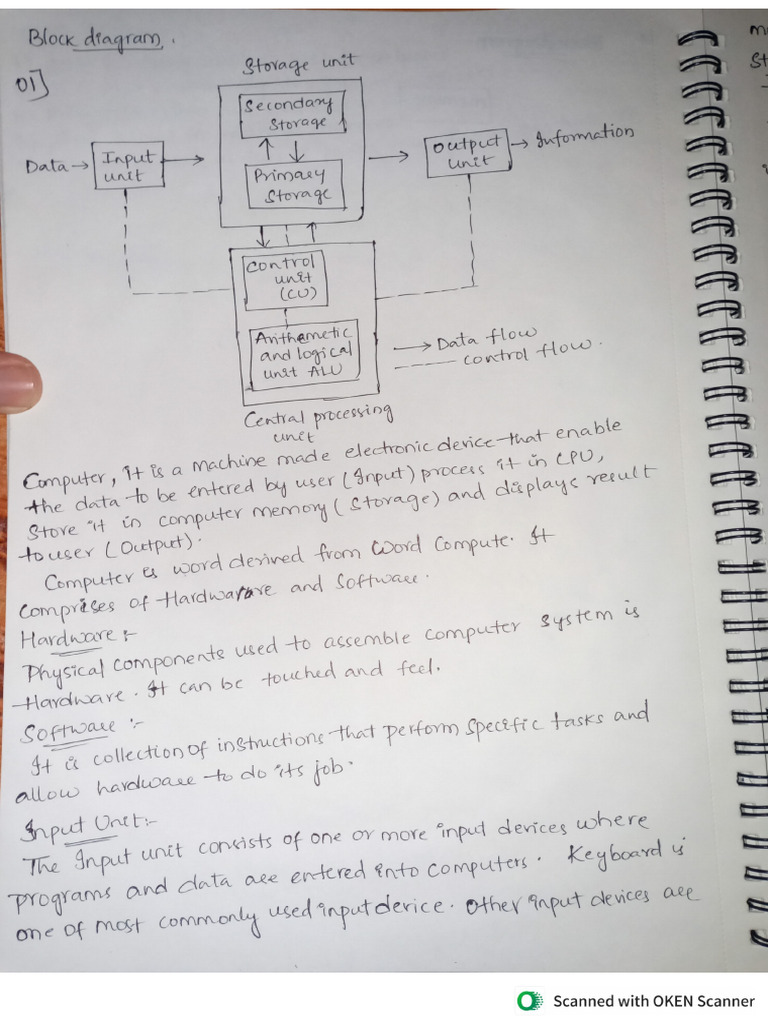 Block diagram.
01]
Storage unit
Secondary
Storage
Data → Input
unit
Primary
Storage
Output
unit
→ Information
Control
unit
(CU)
Arithemetic
and logical
unit ALU
→ Data flow
control flow.
Central processing
unit
Computer, it is a machine made electronic device that enable
the data to be entered by user (Input) process it in CPU,
Store it in computer memory (Storage) and displays result
to user (Output).
Computer is word derived from word Compute. It
Comprises of Hardware and Software.
Hardware :-
Physical components used to assemble computer system is
Hardware. It can be touched and feel.
Software :-
It is collection of instructions that perform specific tasks and
allow hardware to do its job.
Input Unit:-
The Input unit consists of one or more input devices where
programs and data are entered into computers. Keyboard is
one of most commonly used input device. Other input devices are
Scanned with OKEN Scanner